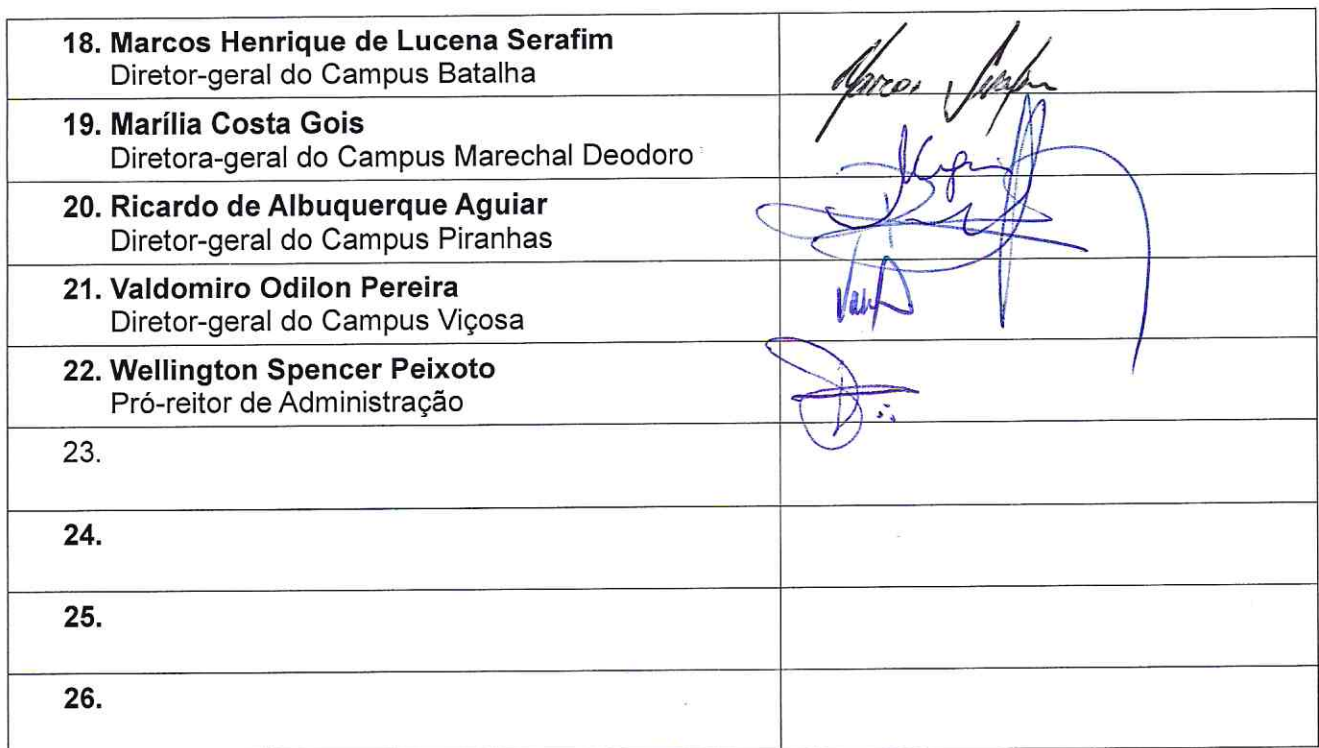 18. Marcos Henrique de Lucena Serafim
Diretor-geral do Campus Batalha
Marcos Serafim
19. Marília Costa Gois
Diretora-geral do Campus Marechal Deodoro
20. Ricardo de Albuquerque Aguiar
Diretor-geral do Campus Piranhas
21. Valdomiro Odilon Pereira
Diretor-geral do Campus Viçosa
22. Wellington Spencer Peixoto
Pró-reitor de Administração
23.
24.
25.
26.